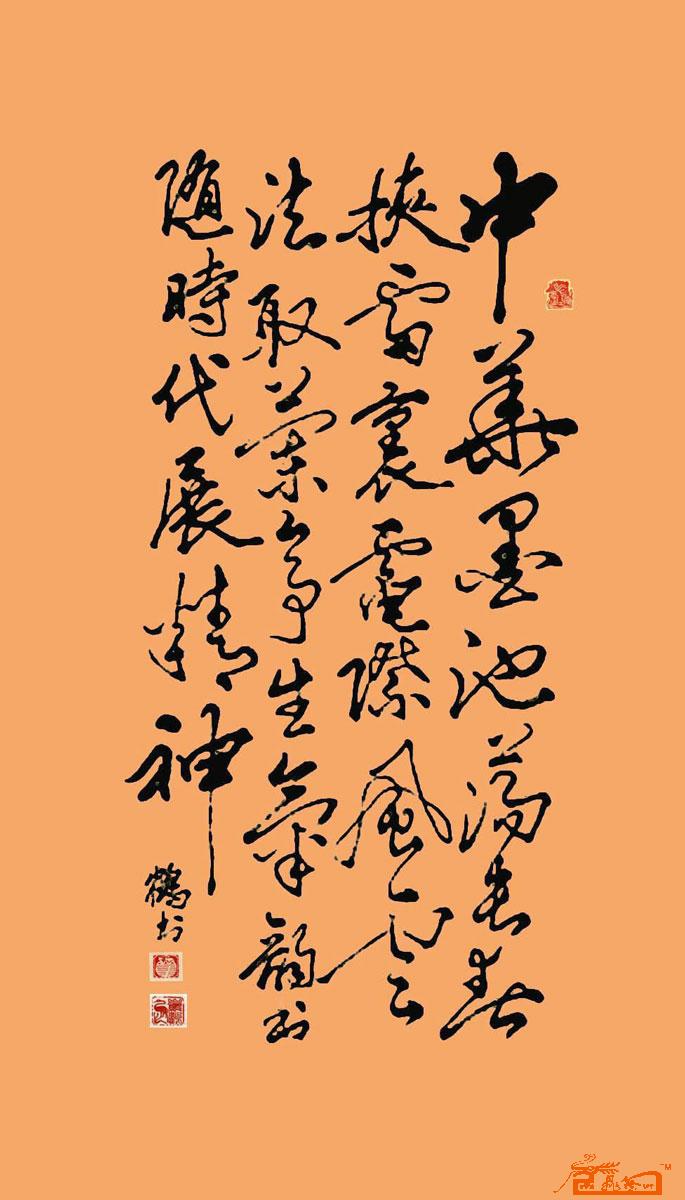 中華墨池蕩春
挾雷裹電際風雲
法取蘭亭生氣韻書
隨時代展精神
鶴書